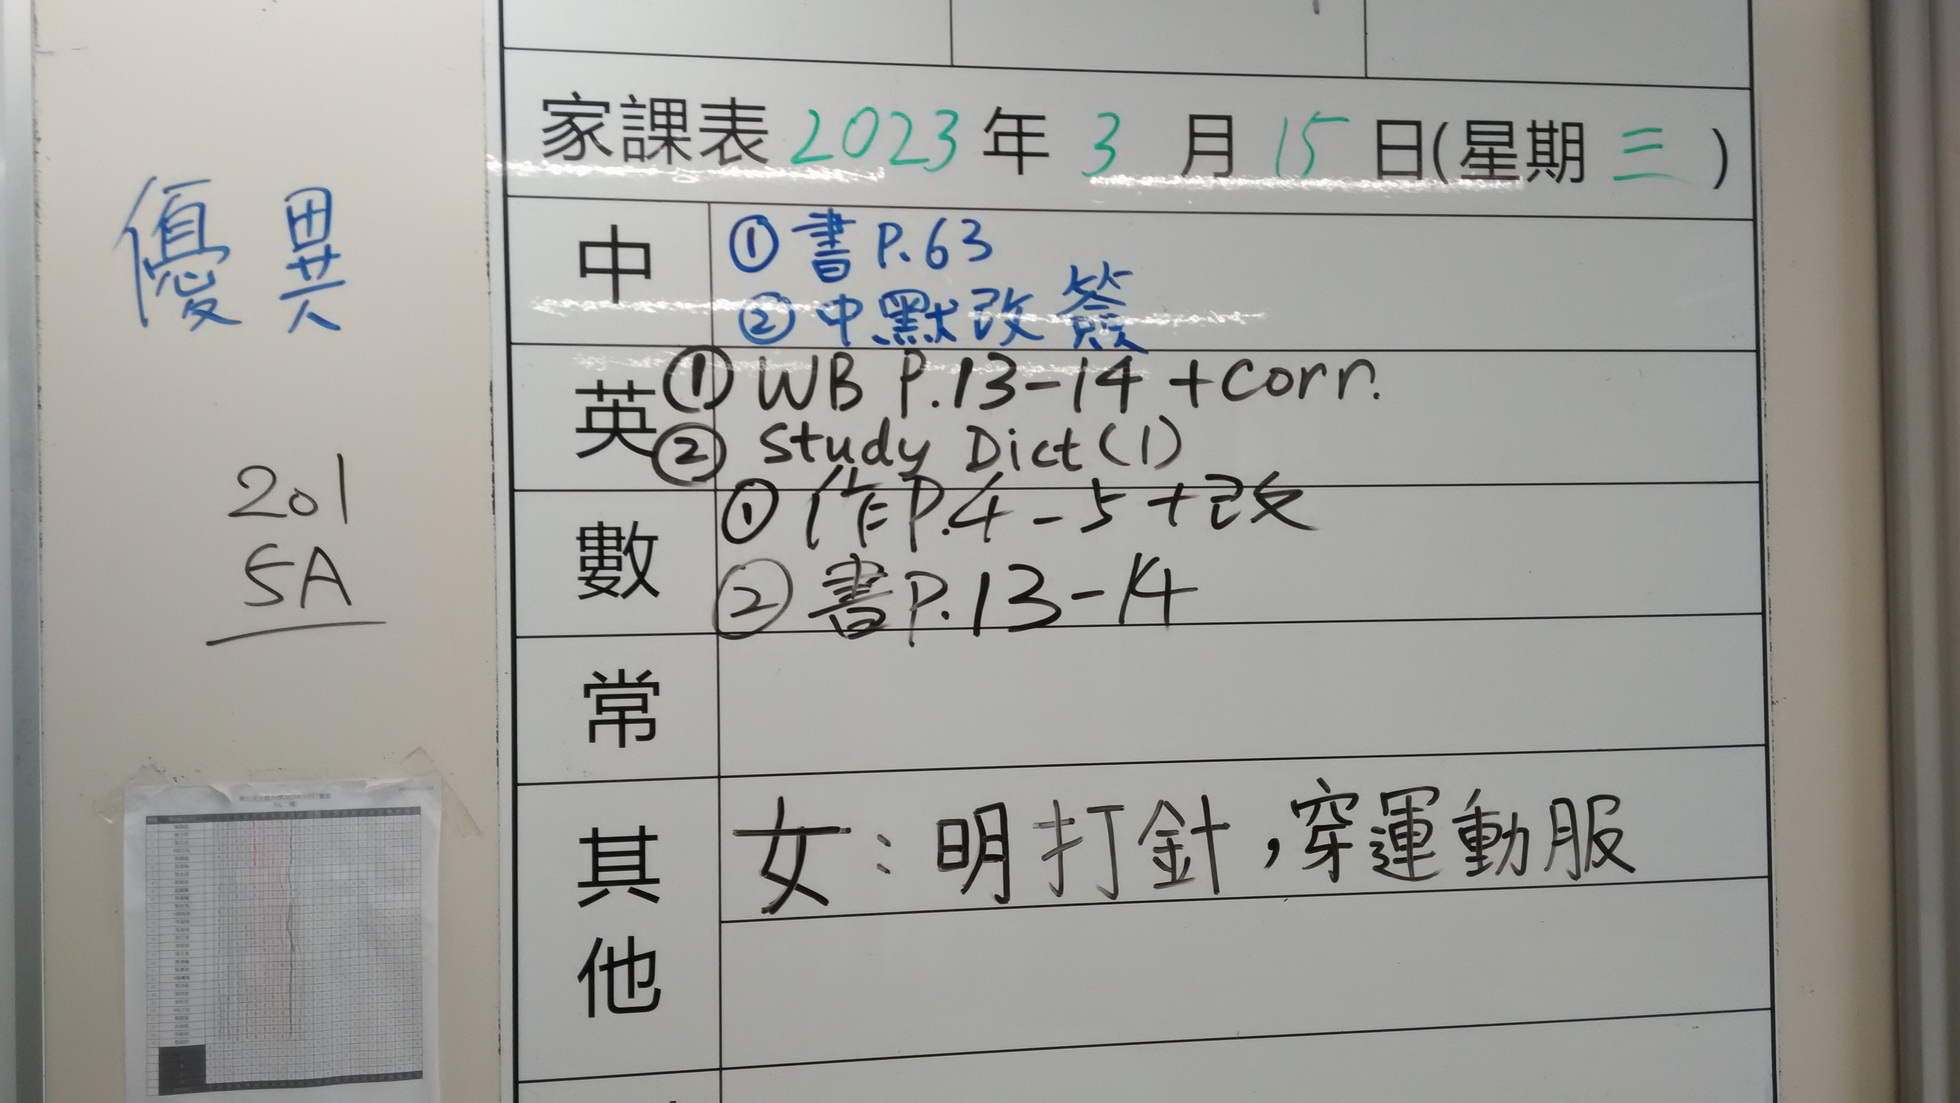 優異
201
5A
家課表 2023 年 3 月 15 日(星期 三 )
中
① 書 P.63
② 中默改簽
英
① WB P.13-14 +corr.
② Study Dict (1)
數
① 作P.4-5+改
② 書P.13-14
常
其他
女：明打針，穿運動服